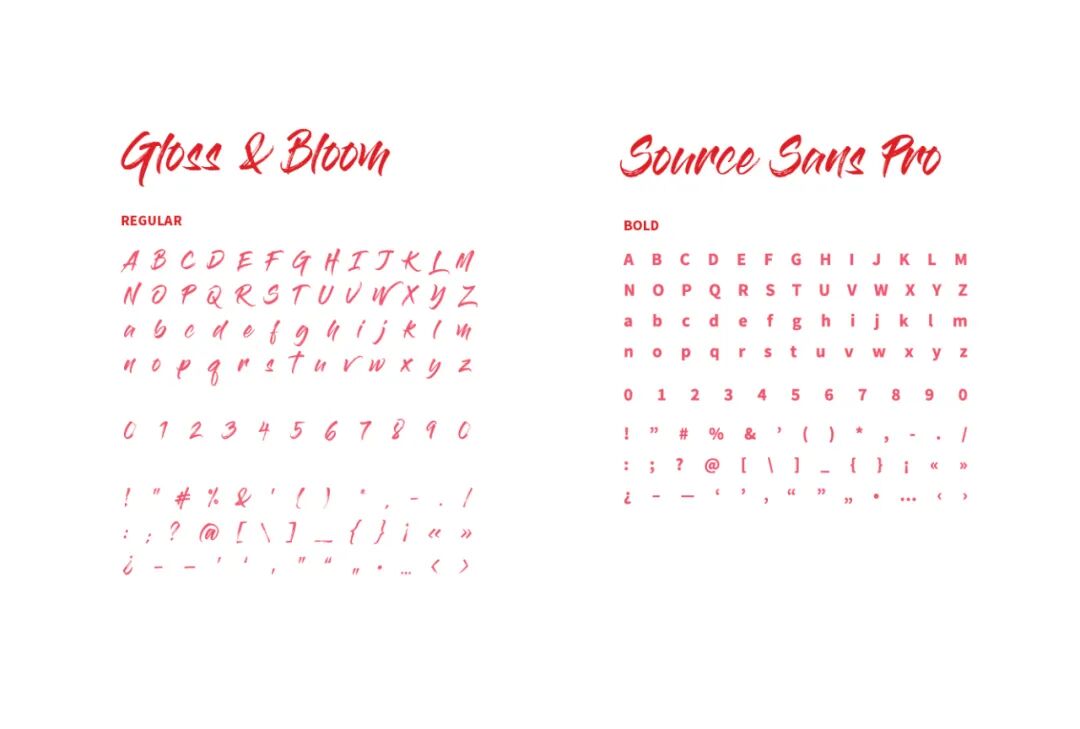 Gloss & Bloom
REGULAR
A B C D E F G H I J K L M
N O P Q R S T U V W X Y Z
a b c d e f g h i j k l m
n o p q r s t u v w x y z
0 1 2 3 4 5 6 7 8 9 0
! " # % & ' ( ) * , - . /
: ; ? @ [ \ ] _ { } ¡ « »
¿ – — ‘ ‘ , " “ „ • … ‹ ›
Source Sans Pro
BOLD
A B C D E F G H I J K L M
N O P Q R S T U V W X Y Z
a b c d e f g h i j k l m
n o p q r s t u v w x y z
0 1 2 3 4 5 6 7 8 9 0
! ” # % & ’ ( ) * , - . /
: ; ? @ [ \ ] _ { } ¡ « »
¿ – — ‘ ’ , “ ” „ • … ‹ ›